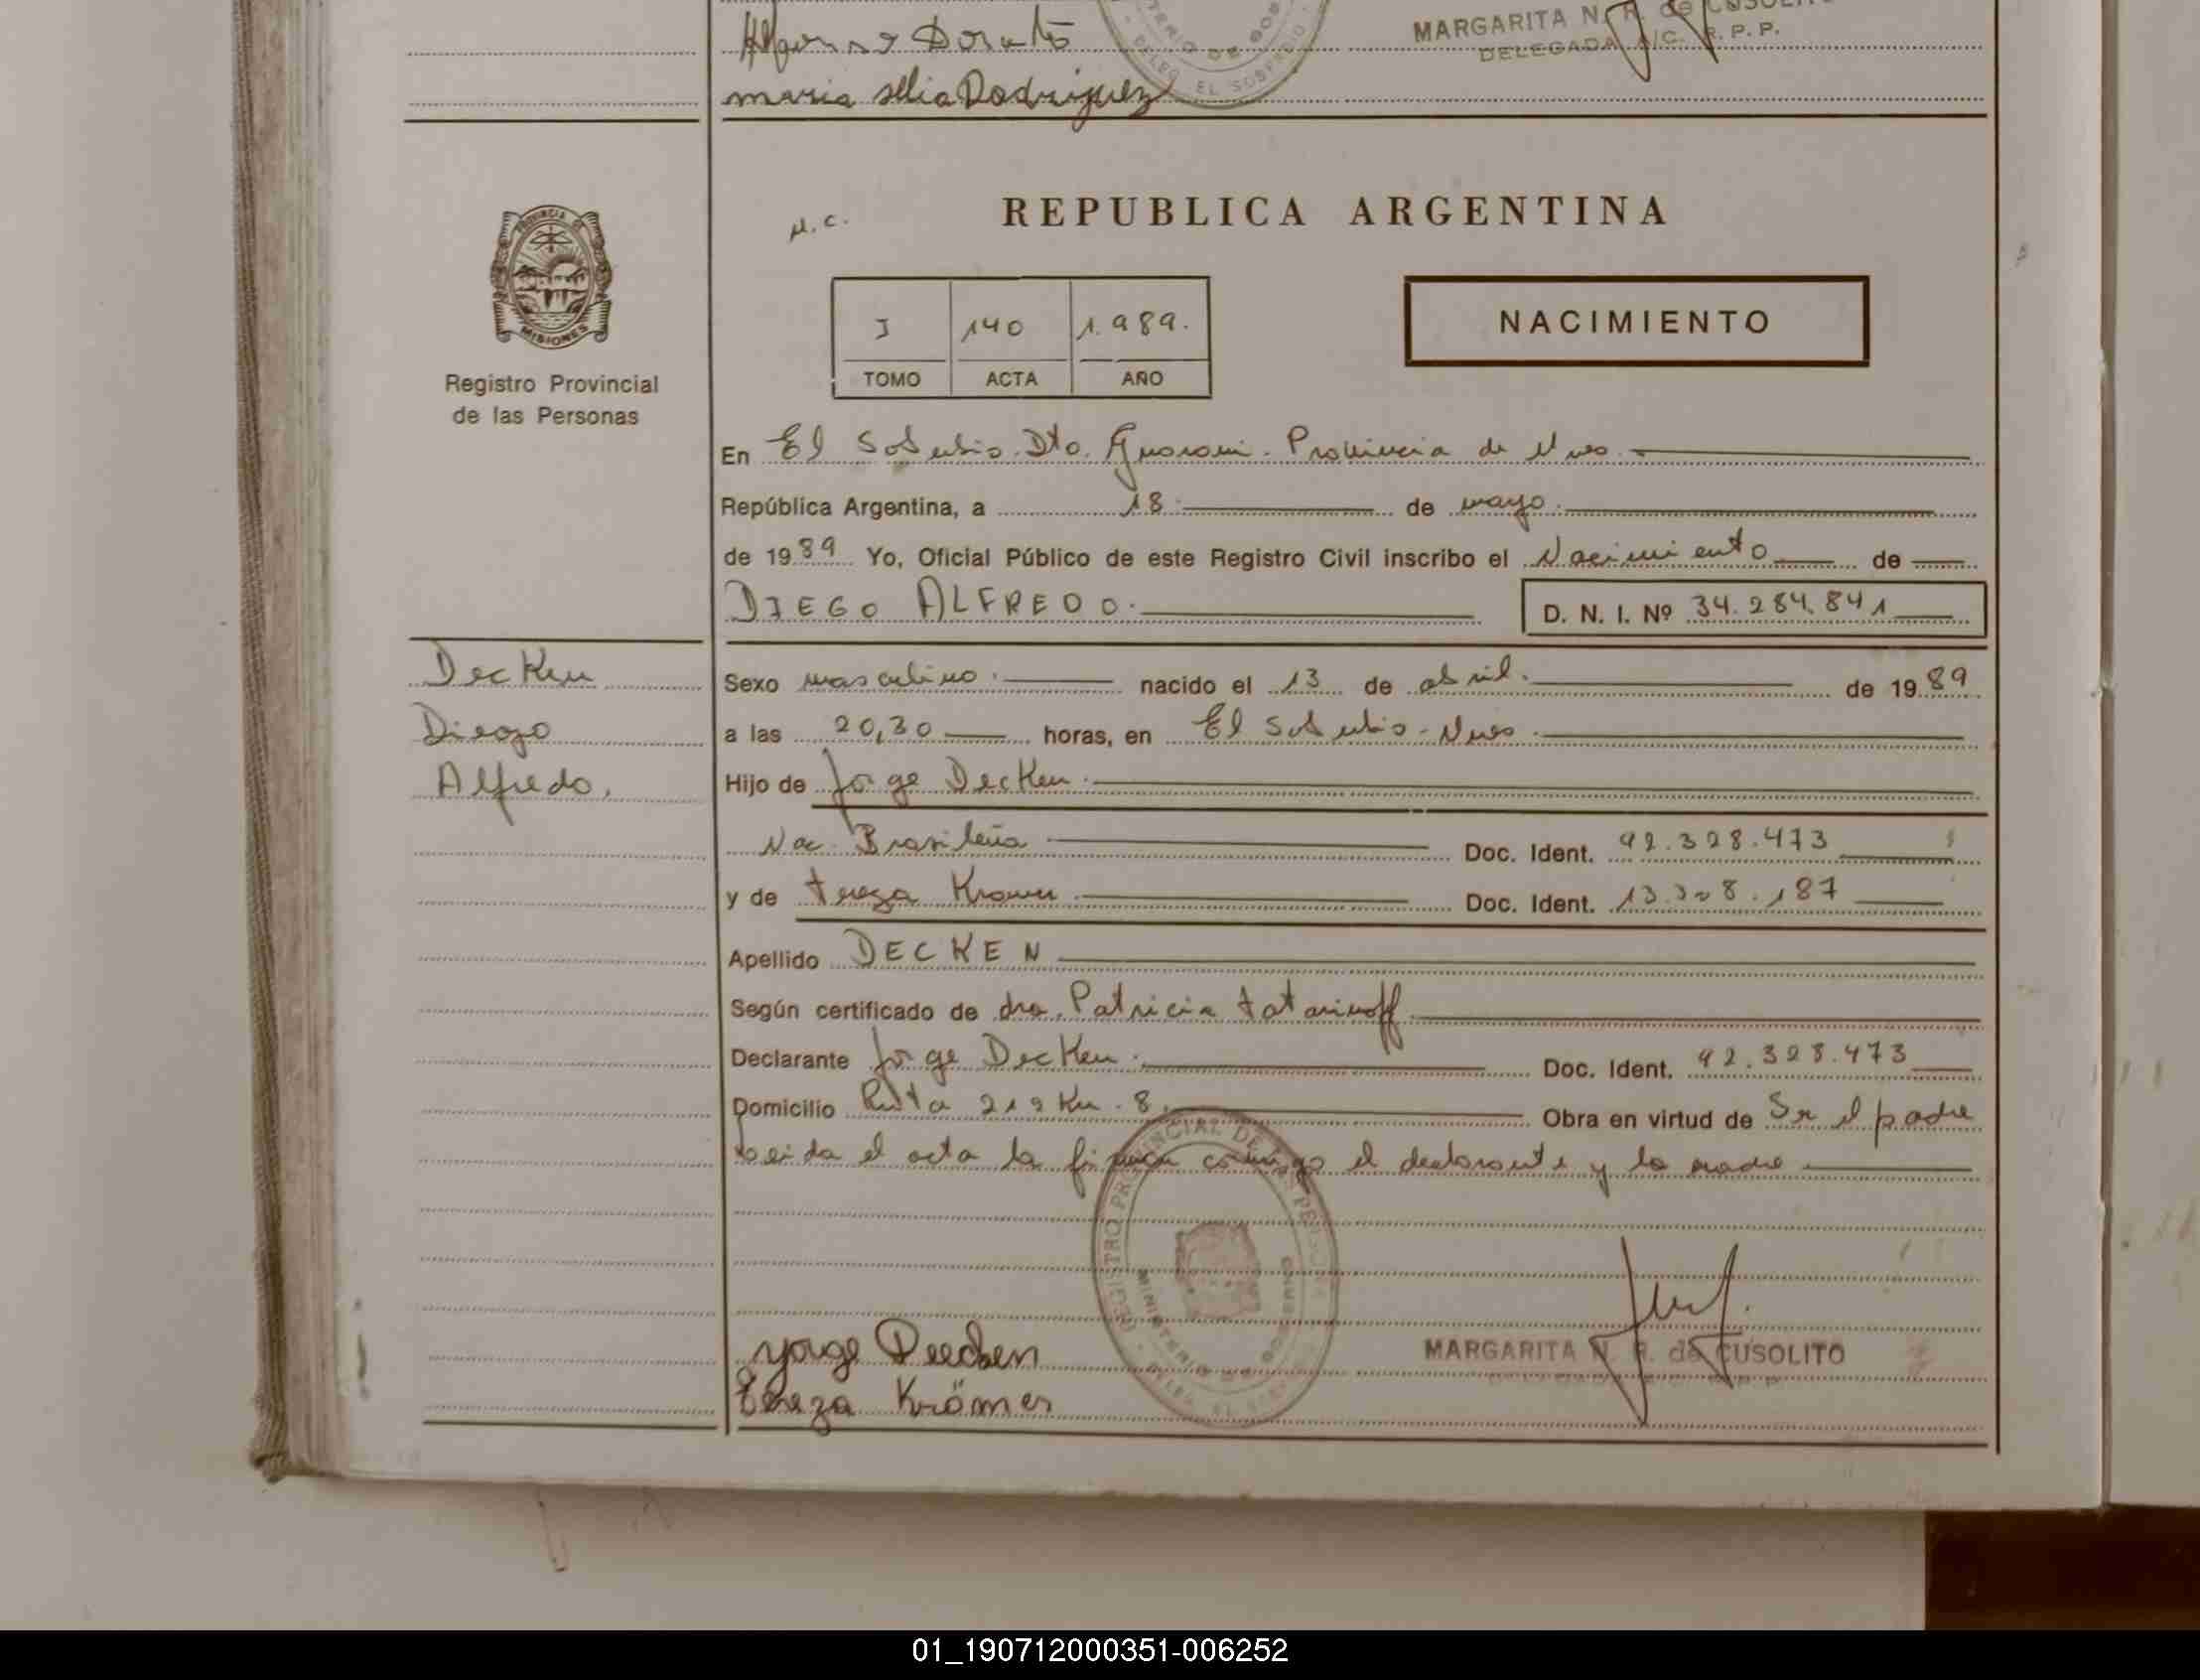 Dorato
MARGARITA N. R. de CUSOLITO
DELEGADA A/C. R. P. P.
maria selia Rodriguez
PROVINCIA DE
MISIONES
Registro Provincial
de las Personas
REPUBLICA ARGENTINA
I 140 1.989.
TOMO ACTA AÑO
NACIMIENTO
En El Soberbio. Dto. Guarani. Provincia de Mnes.
República Argentina, a 18 de mayo.
de 1989 Yo, Oficial Público de este Registro Civil inscribo el Nacimiento de
DIEGO ALFREDO. D. N. I. Nº 34.284.841
Decken
Diego
Alfredo.
Sexo masculino. nacido el 13 de abril. de 1989
a las 20,30 horas, en El Soberbio - Mnes.
Hijo de Jorge Decken.
Nac. Brasileña Doc. Ident. 92.328.473
y de tereza Kramer. Doc. Ident. 13.308.187
Apellido DECKEN
Según certificado de dra. Patricia tatarinoff.
Declarante Jorge Decken. Doc. Ident. 92.328.473
Domicilio Ruta 212 Km. 8. Obra en virtud de Ser el padre
Leida el acta la firman conmigo el declarante y la madre
REGISTRO PROVINCIAL DE LAS PERSONAS
MINISTERIO DE GOBIERNO
yorge Decken
tereza Krämer
MARGARITA N. R. de CUSOLITO
01_190712000351-006252